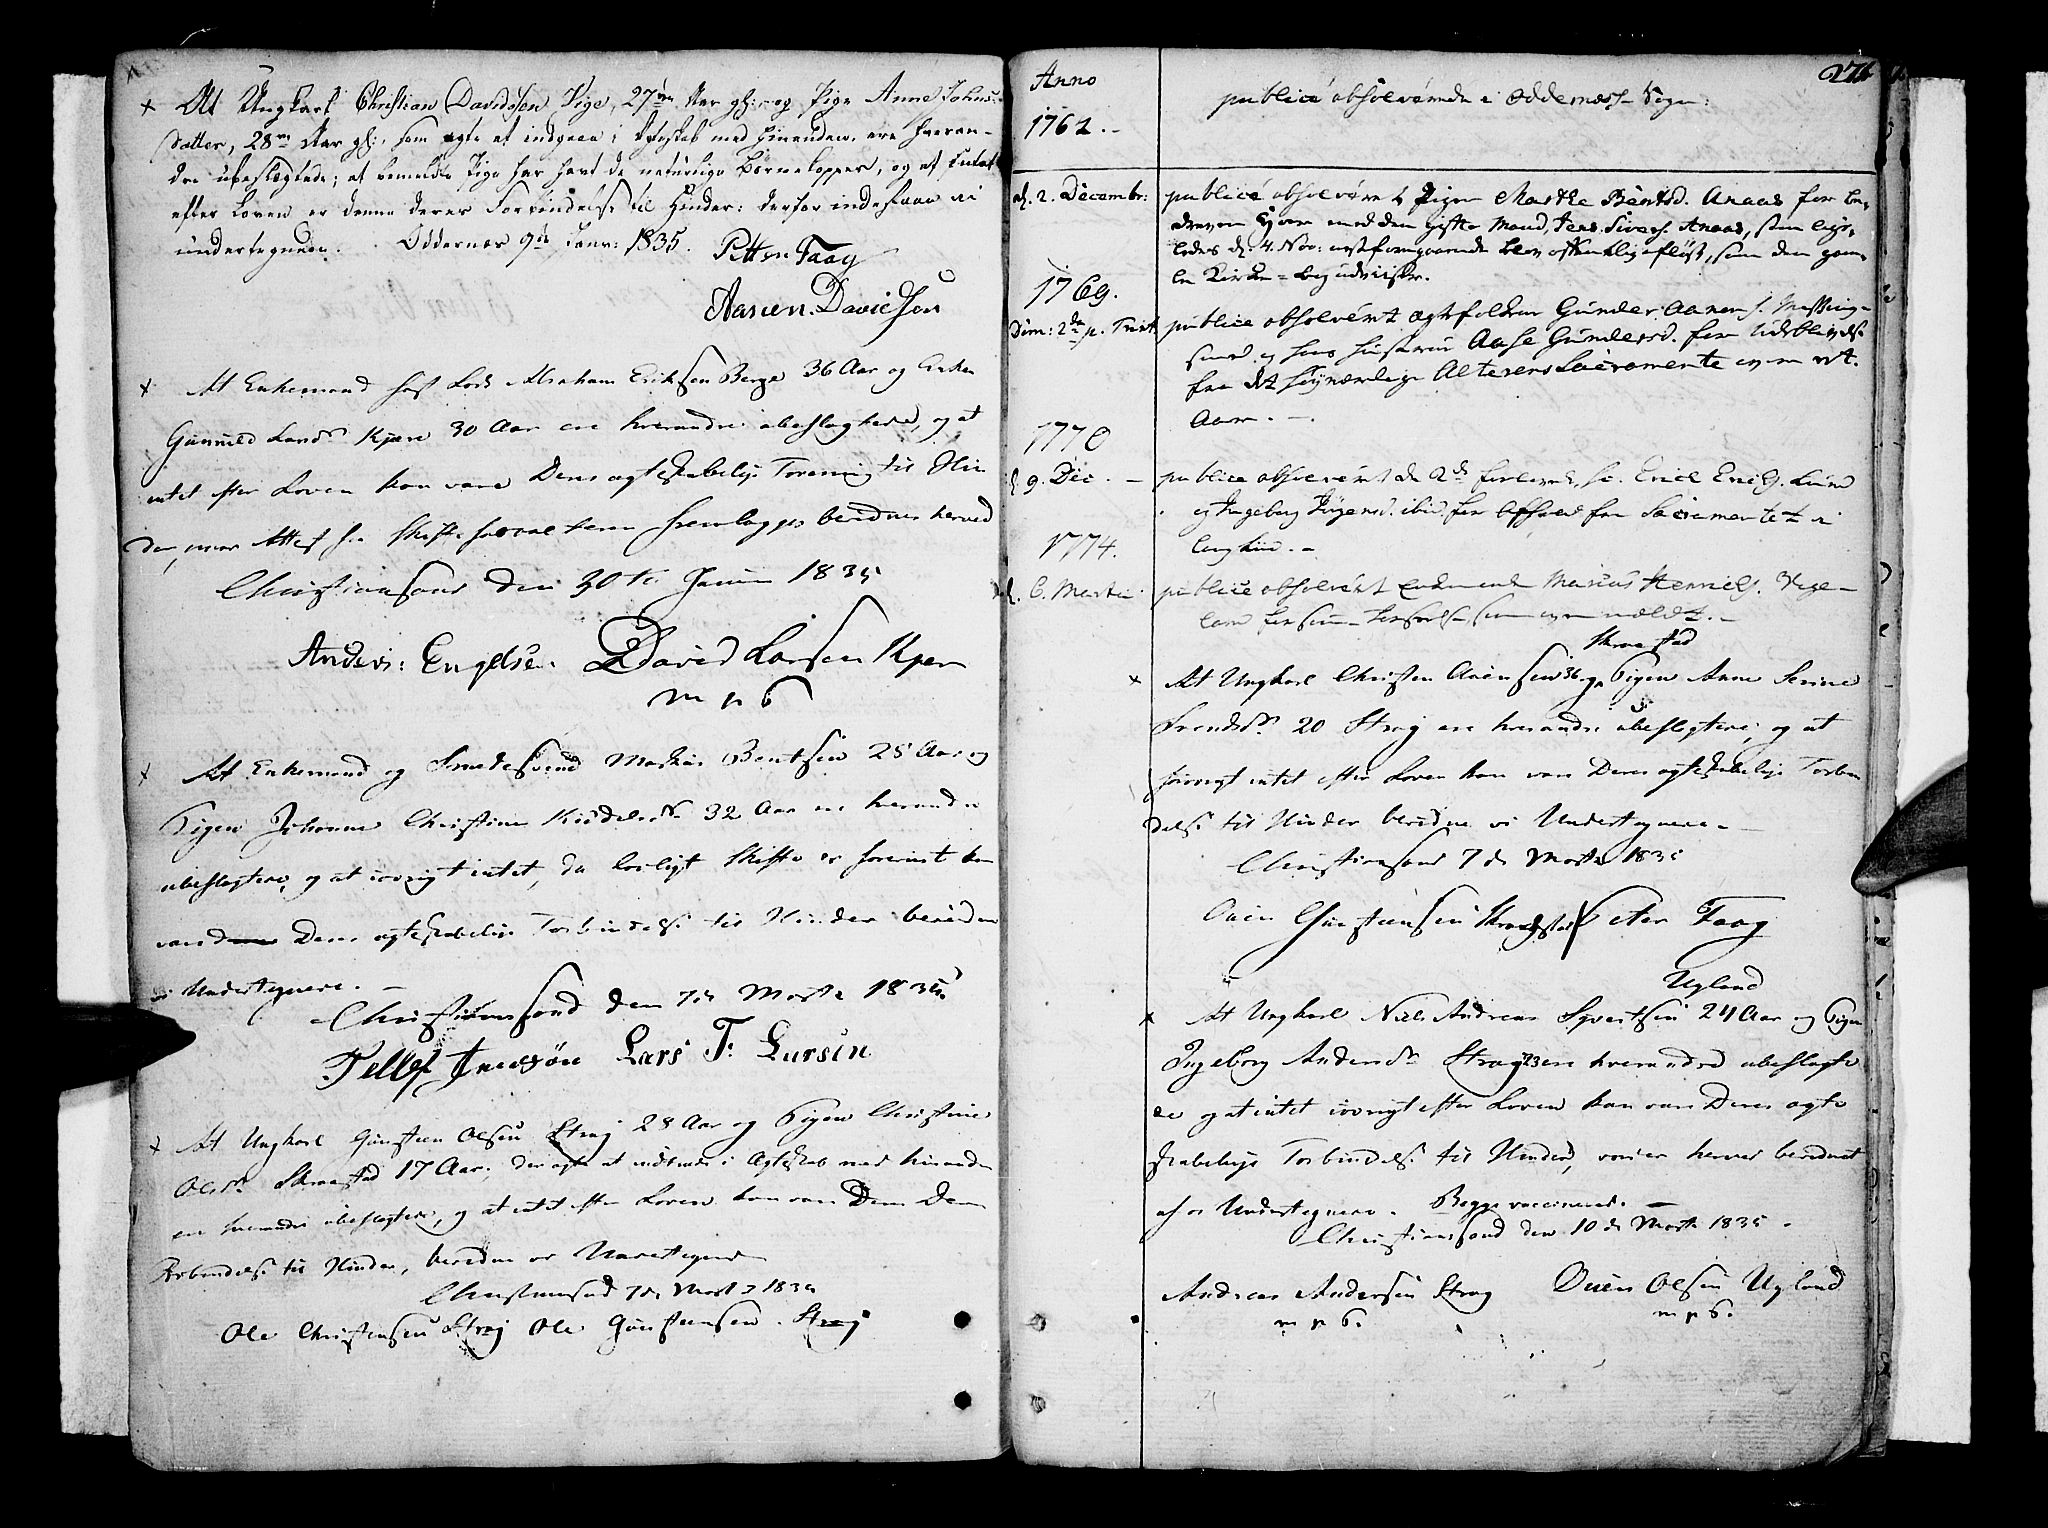 At Ungkarl Christian Davidsen Vige, 27 Aar gl: og Pige Anne Johns:
datter, 28 Aar gl:, som agte at indgaae i Ægteskab med hinanden, ere hveran-
dre ubeslægtede; at bemeldte Pige har havt de naturlige Børnekopper, og at Intet
efter Loven er denne deres Forbindelse til Hinder: derfor indestaae vi
undertegnede. Oddernes 9de Janr: 1835. Petter Faag
Aanen Davidsen
At Enkemand Lods Abraham Eriksen Berge 36 Aar og Enken
Gunnild Kjære 30 Aar ere hverandre ubeslægtede, og at
intet efter Loven kan være Deres ægteskabelige Forening til Hin
der, naar Attest fra Skifteforvalteren fremlægges bevidnes herved
Christiansand den 30te Janua 1835
Anders: Engelsen. David Larsen Kjær
m p
At Enkemand og Smedesvend Markus Bentsen 28 Aar og
Pigen Johanne Christine 32 Aar ere hverandre
ubeslægtede, og at iøvrigt intet, da lovligt Skifte er foreviist kan
være Deres ægteskabelige Forbindelse til Hinder bevidne
vi Undertegnede. -
Christiansand den 7de Marts 1835
Tellef Lars T: Larsen
At Ungkarl Gunsteen Olsen Strag 28 Aar og Pigen Christine
Olsdr Skraastad 17 Aar, der agte at indtræde i Ægteskab med hinanden
ere hverandre ubeslægtede, og at intet efter Loven kan være Dem Denne
Forbindelse til Hinder, bevidne vi Undertegnede
Christiansand 7de Marts 1835
Ole Christensen Strag Ole Gunsteensen. Strag
Anno
1762.-
publicè absolverede i Oddernæss- Sogn:
d. 2. Decembr:
publicè absolveret Pigen Marthe Bentsd. Anaas for be-
dreven Hoer med den gifte Mand, Jens Sivers. Anaas, som lige-
ledes d. 4. Nov: nestforrgaaende blev offentlig afløst, som den gam-
le Kirke-bog udviser.
1769.
Dom: 2da p. Trinit.
publicè absolveret Ægtefolkene Gunder Aanens. Messing-
smed og hans Hustrue Aase Gundersd. for Udeblivelse
fra det høyværdige Alterens Sacramente over et
Aar. -
1770
d. 9. Dec. -
publicè absolveret de 2de Erich Erichs. Lund
og Ingeborg Jörgensd. ibid. for Afhold fra Sacramentet i
lang tiid. -
1774.
d. 6. Martii
publicè absolveret Marcus Henrichs. Vige-
for samme Forseelse som ovenmeldt. -
Skraastad
At Ungkarl Christen Ovensen 36 og Pigen Anne Serine
20 Strag ere hverandre ubeslægtede, og at
forøvrigt intet efter Loven kan være Deres ægteskabelige Forbin
delse til Hinder bevidne vi Undertegnede -
Christiansand 7de Marts 1835
Oven Gunsteensen Skraastad Peter Faag
Ugland
At Ungkarl Niels Andreas Syvertsen 24 Aar og Pigen
Ingeborg Andersdr Strag 23 ere hverandre ubeslægte
de og at intet iøvrigt efter Loven kan være Deres ægte
skabelige Forbindelse til Hinder, vorder herved bevidnet
af os Undertegnede. Begge vaccinerede. -
Christiansand den 10de Marts 1835 -
Andreas Andersen Strag Ouen Olsen Ugland
m p m p